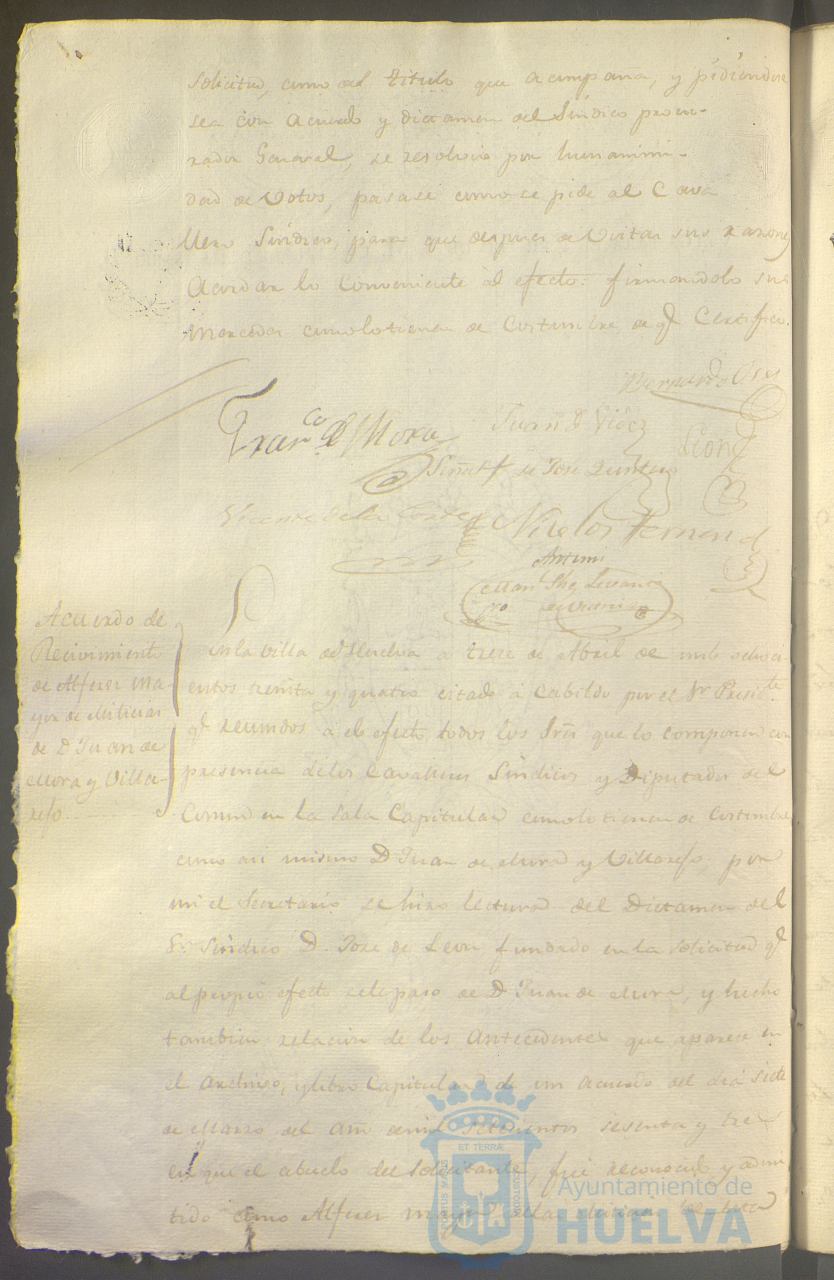 solicitud, como del titulo que acompaña, y pidiendose
sea con acuerdo y dictamen del Sindico procu-
rador General, se resolvió por hunanimi-
dad de Votos, pasase como se pide al Cava
llero Sindico, para que despues de Vistas sus razones
Acordar lo Conveniente al efecto: firmandolo sus
mercedes como lo tienen de Costumbre, de q.e Certifico.
Bernardo
Fran.co de Mora
Juan
Leon
Señal + de José Quintero
Vicente de la Corte
Nicolas Hernand
Ante mi
Acuerdo de
Recivimiento
de Alferez Ma-
yor de Milicias
de D. Juan de
Mora y Villa-
refo
En la villa de Huelva a trece de Abril de mil ochoci-
entos treinta y quatro citado á Cabildo por el Sr. Presid.te
q.e reunidos a el efecto todos los Sres que lo componen con
presencia de los Cavalleros Sindicos y Diputados del
Comun en la sala Capitular como lo tienen de Costumbre
como asi mismo D. Juan de Mora y Villarefo, por
mi el Secretario se hizo lectura del Dictamen del
Sr. Sindico D. Jose de Leon fundado en la solicitud q.e
al propio efecto se le paso de D. Juan de Mora, y hecho
tambien relacion de los Antecedentes que aparese en
el archivo, y libro Capitular de un Acuerdo del dia siete
de Marzo del año de mil setecientos sesenta y tres
en que el abuelo del solicitante, fue reconocido y admi
tido como Alferez mayor de las Milicias
ET TERRÆ
Ayuntamiento de
HUELVA